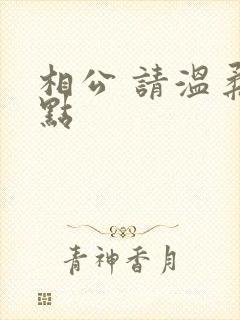 相公 請溫柔
點
青神香月